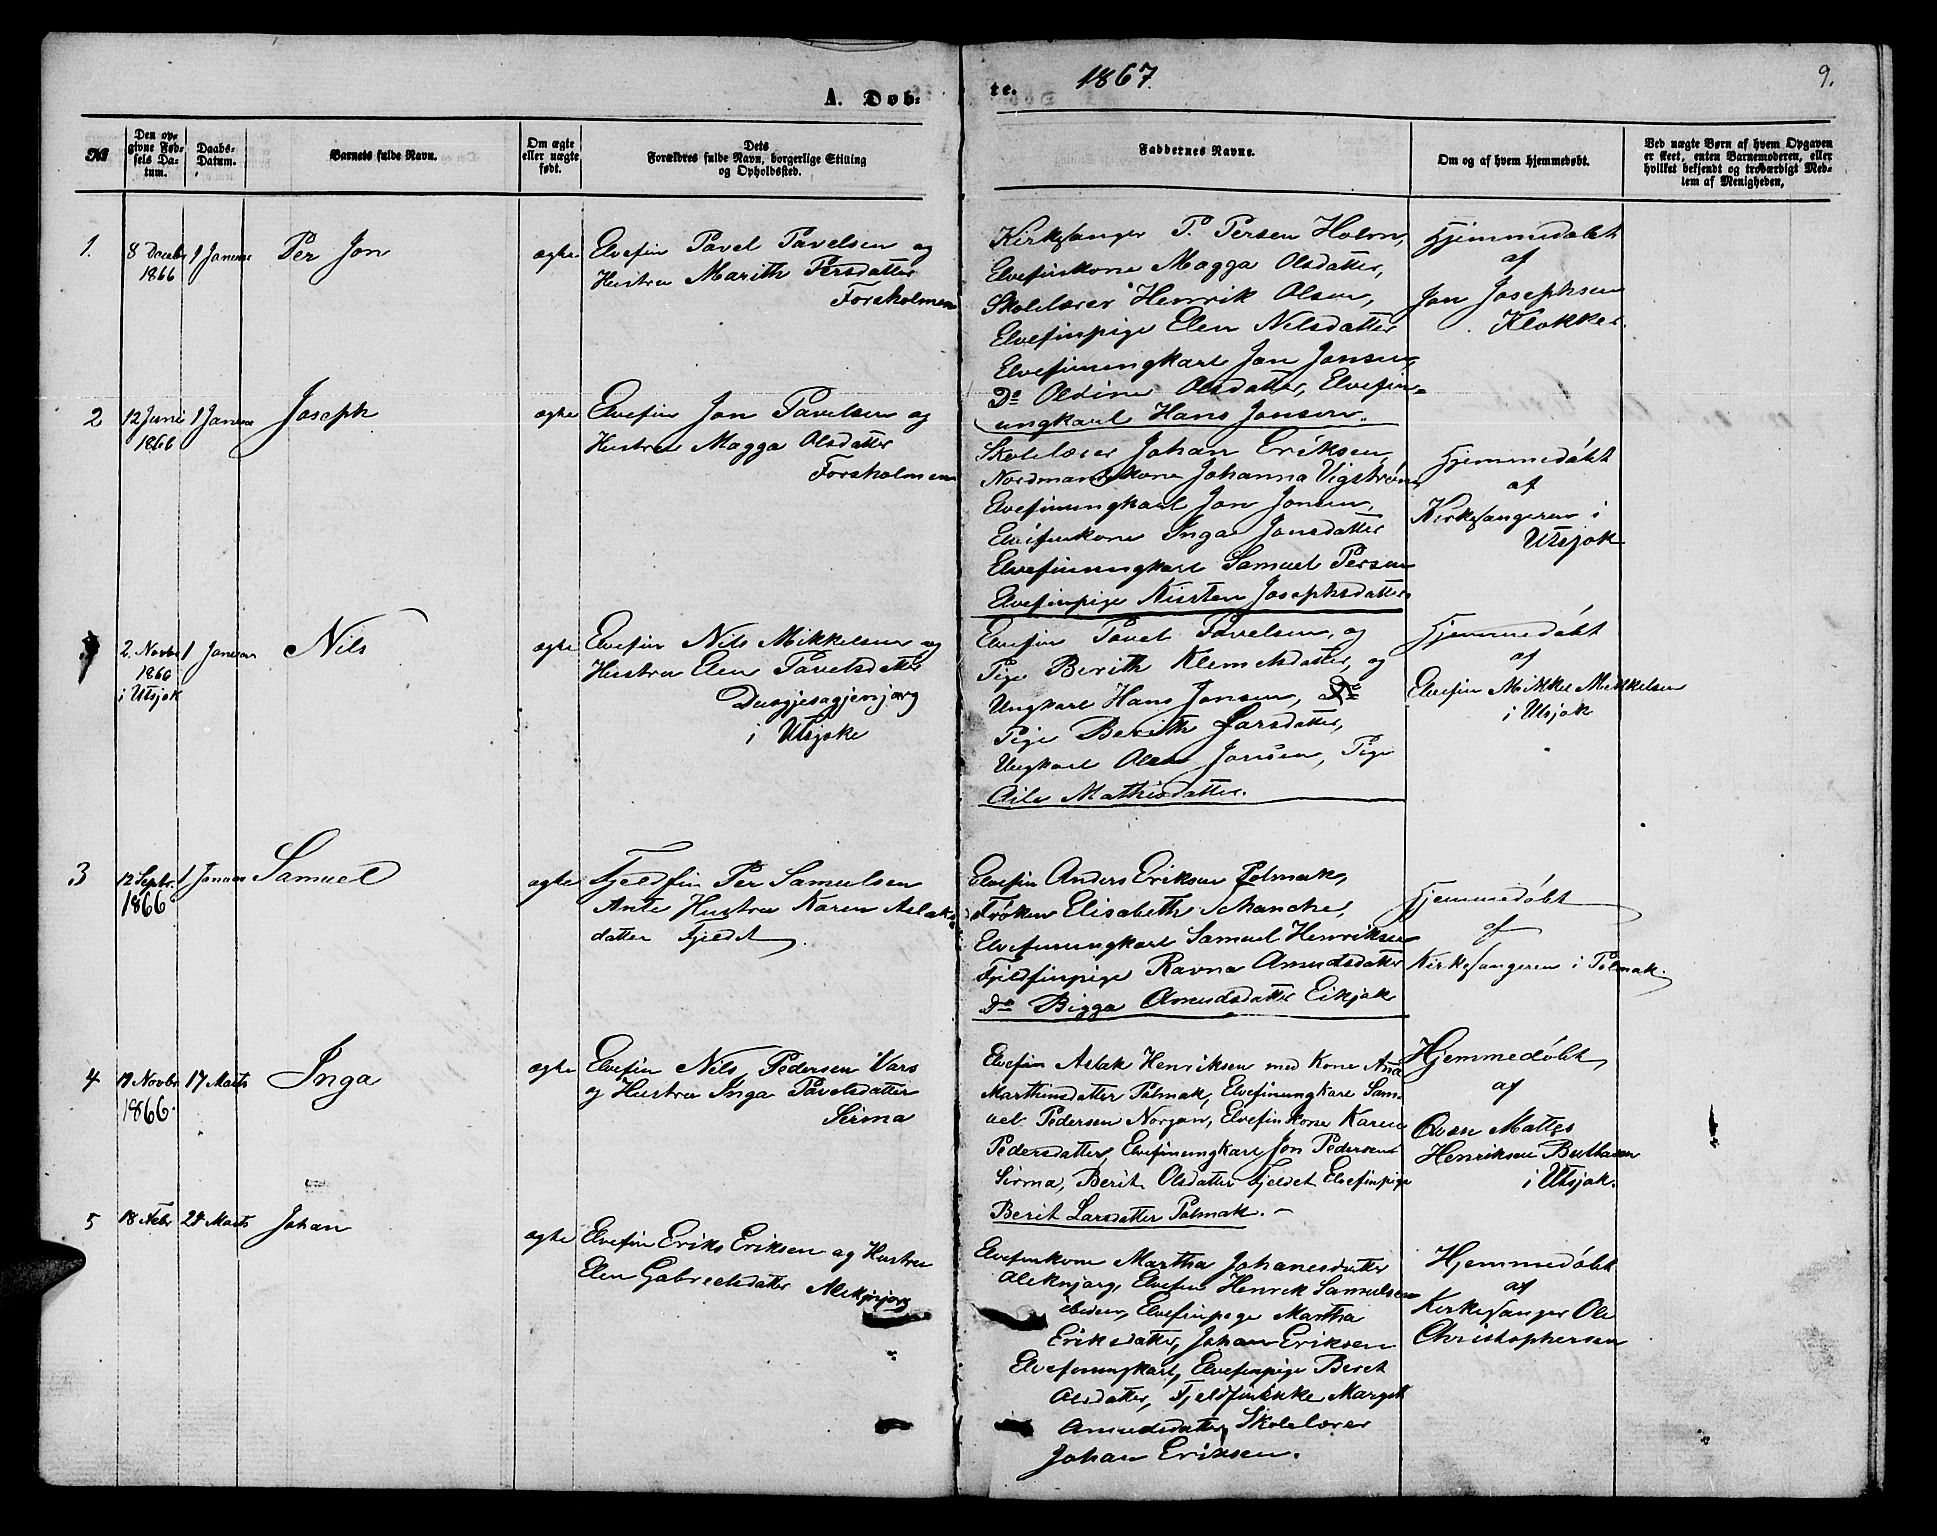 1867.
9.
A. Døb-
te.
№
Den op-
givne Fød-
sels Da-
tum.
Daabs-
Datum.
Barnets fulde Navn.
Om ægte
eller uægte
født.
Dets
Forældres fulde Navn, borgerlige Stilling
og Opholdssted.
Faddernes Navne.
Om og af hvem hjemmedøbt.
Ved uægte Børn af hvem Opgaven
er skeet, enten Barnemoderen, eller
hvilket bekjendt og troværdigt Med-
lem af Menigheden,
1.
8 Decbr
1866
1 Januar
Per Jon
ægte
Elvefin Pavel Pavelsen og
Hustru Marith Persdatter
Forsholmen
Kirkesanger P. Persen Holm,
Elvefinkone Magga Olsdatter,
Skolelærer Henrik Olsen,
Elvefinpige Elen Nilsdatter
Elvefinungkarl Jon Jonsen,
Do Oldine Olsdatter, Elvefin-
ungkarl Hans Jonsen.
Hjemmedøbt
af
Jon Josephsen
Klokker.
2
12 Juni
1866
1 Januar
Joseph
ægte
Elvefin Jon Pavelsen og
Hustru Magga Olsdatter
Forsholmen
Skolelærer Johan Eriksen,
Nordmandskone Johanna Vigstrøm,
Elvefinungkarl Jon Jonsen,
Elvefinkone Inga Jonsdatter
Elvefinungkarl Samuel Persen
Elvefinpige Kirsten Josephsdatter
Hjemmedøbt
af
Kirkesangeren i
Utsjok
2. Novbr
1866
i Utsjok
1 Januar
Nils
ægte
Elvefin Nils Mikkelsen og
Hustru Elen Pavelsdatter
i Utsjok
Elvefin Pavel Pavelsen, og
Pige Berith Klemetsdatter, og
Ungkarl Hans Jonsen, Do
Pige Berith Larsdatter,
Ungkarl Olea Jonsen, Pige
Aile Mathisdatter.
Hjemmedøbt
af
Elvefin Mikkel Mikkelsen
i Utsjok
3
12 Septbr.
1866
1 Januar
Samuel
ægte
Fjeldfin Per Samuelsen
Ante Hustru Karen Aslaks
datter Fjeldet
Elvefin Anders Eriksen Polmak,
Frøken Elisabeth Schanche,
Elvefinungkarl Samuel Henriksen
Fjeldfinpige Ravna Amundsdatter
Do Bigga Amundsdatter Eikjok
Hjemmedøbt
af
Kirkesangeren i Polmak.
4
19 Novbr
1866.
17 Marts
Inga
ægte
Elvefin Nils Pedersen Vars
og Hustru Inga Pavelsdatter
Sirma
Elvefin Aslak Henriksen med Kone Ana
Marthinsdatter Polmak, Elvefinungkarl Sam-
uel Pedersen Norgan, Elvefinkone Karen
Pedersdatter, Elvefinungkarl Jon Pedersen
Sirma, Berit Olsdatter Fjeldet Elvefinpige
Berit Larsdatter Polmak.
Hjemmedøbt
af
Qvæn Mattes
Henriksen
i Utsjok.
5
18 Febr
28 Marts
Johan
ægte
Elvefin Eriks Eriksen og Hustru
Elen Gabrielsdatter Aleknjarg
Elvefinkone Martha Johanesdatter
Aleknjarg, Elvefin Henrik Samuelsen
ibiden, Elvefinpige Martha
Eriksdatter, Johan Eriksen
Elvefinungkarl, Elvefinpige Beret
Olsdatter, Margit
Amundsdatter, Skolelærer
Johan Eriksen.
Hjemmedøbt
af
Kirkesanger Ole
Christophersen